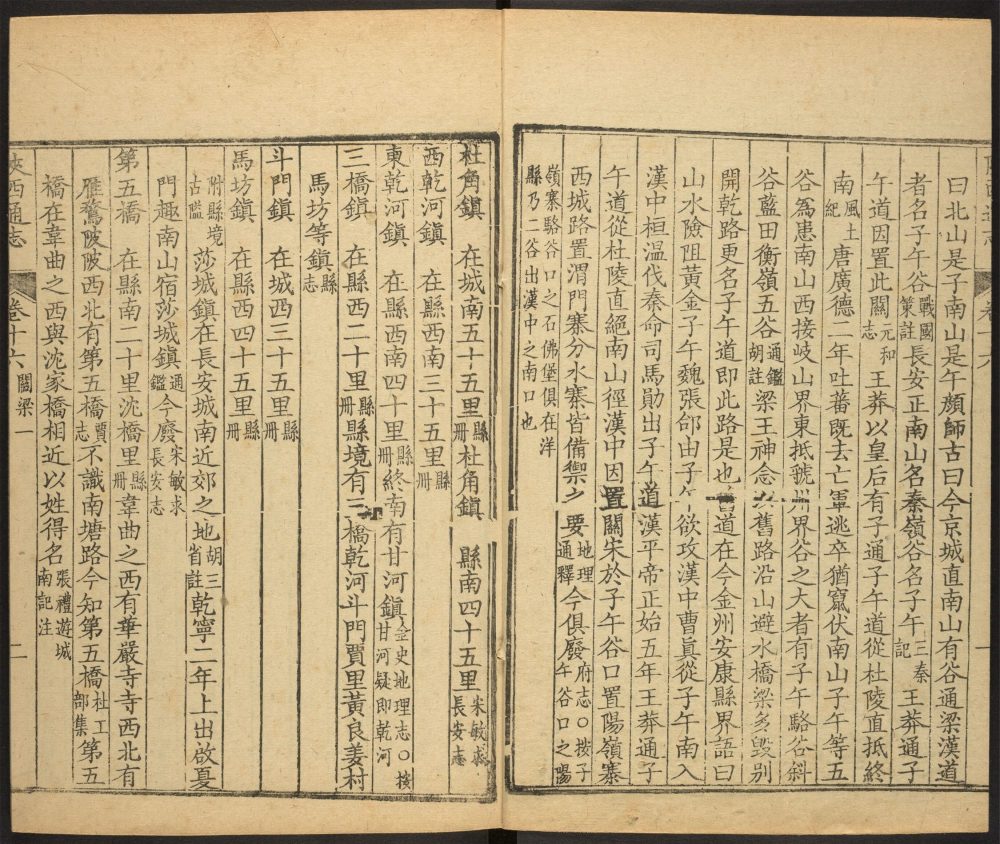 曰北山是子南山是午顏師古曰今京城直南山有谷通梁漢道
者名子午谷戰國策註長安正南山名秦嶺谷名子午三秦記王莽通子
午道因置此關元和志王莽以皇后有子通子午道從杜陵直抵終
南風土紀唐廣德二年吐蕃既去亡軍逃卒猶竄伏南山子午等五
谷為患南山西接岐山界東抵虢州界谷之大者有子午駱谷斜
谷藍田衡嶺五谷通鑑胡註梁王神念以舊路沿山避水橋梁多毀別
開乾路更名子午道即此路是也舊道在今金州安康縣界語曰
山水險阻黃金子午魏張郃由子午欲攻漢中曹真從子午南入
漢中桓溫伐秦命司馬勛出子午道漢平帝正始五年王莽通子
午道從杜陵直絕南山徑漢中因置關宋於子午谷口置陽嶺寨
西城路置渭門寨分水寨皆備禦之要地理通釋今俱廢府志〇按子午谷口之陽
嶺寨駱谷口之石佛堡俱在洋縣乃二谷出漢中之南口也
杜角鎮 在城南五十五里縣冊杜角鎮 縣南四十五里宋敏求長安志
西乾河鎮 在縣西南三十五里縣冊
東乾河鎮 在縣西南四十里縣冊終南有甘河鎮金史地理志〇按甘河疑即乾河
三橋鎮 在縣西二十里縣冊縣境有三橋乾河斗門賈里黃良姜村
馬坊等鎮縣志
斗門鎮 在城西三十五里縣冊
馬坊鎮 在縣西四十五里縣冊
附縣境古鑑 莎城鎮在長安城南近郊之地胡三省註乾寧二年上出啟夏
門趣南山宿莎城鎮通鑑今廢宋敏求長安志
第五橋 在縣南二十里沈橋里縣冊韋曲之西有華嚴寺寺西北有
雁鶩陂陂西北有第五橋賈志不識南塘路今知第五橋杜工部集第五
橋在韋曲之西與沈家橋相近以姓得名張禮遊城南記注
陝西通志 卷十六 關梁一 二